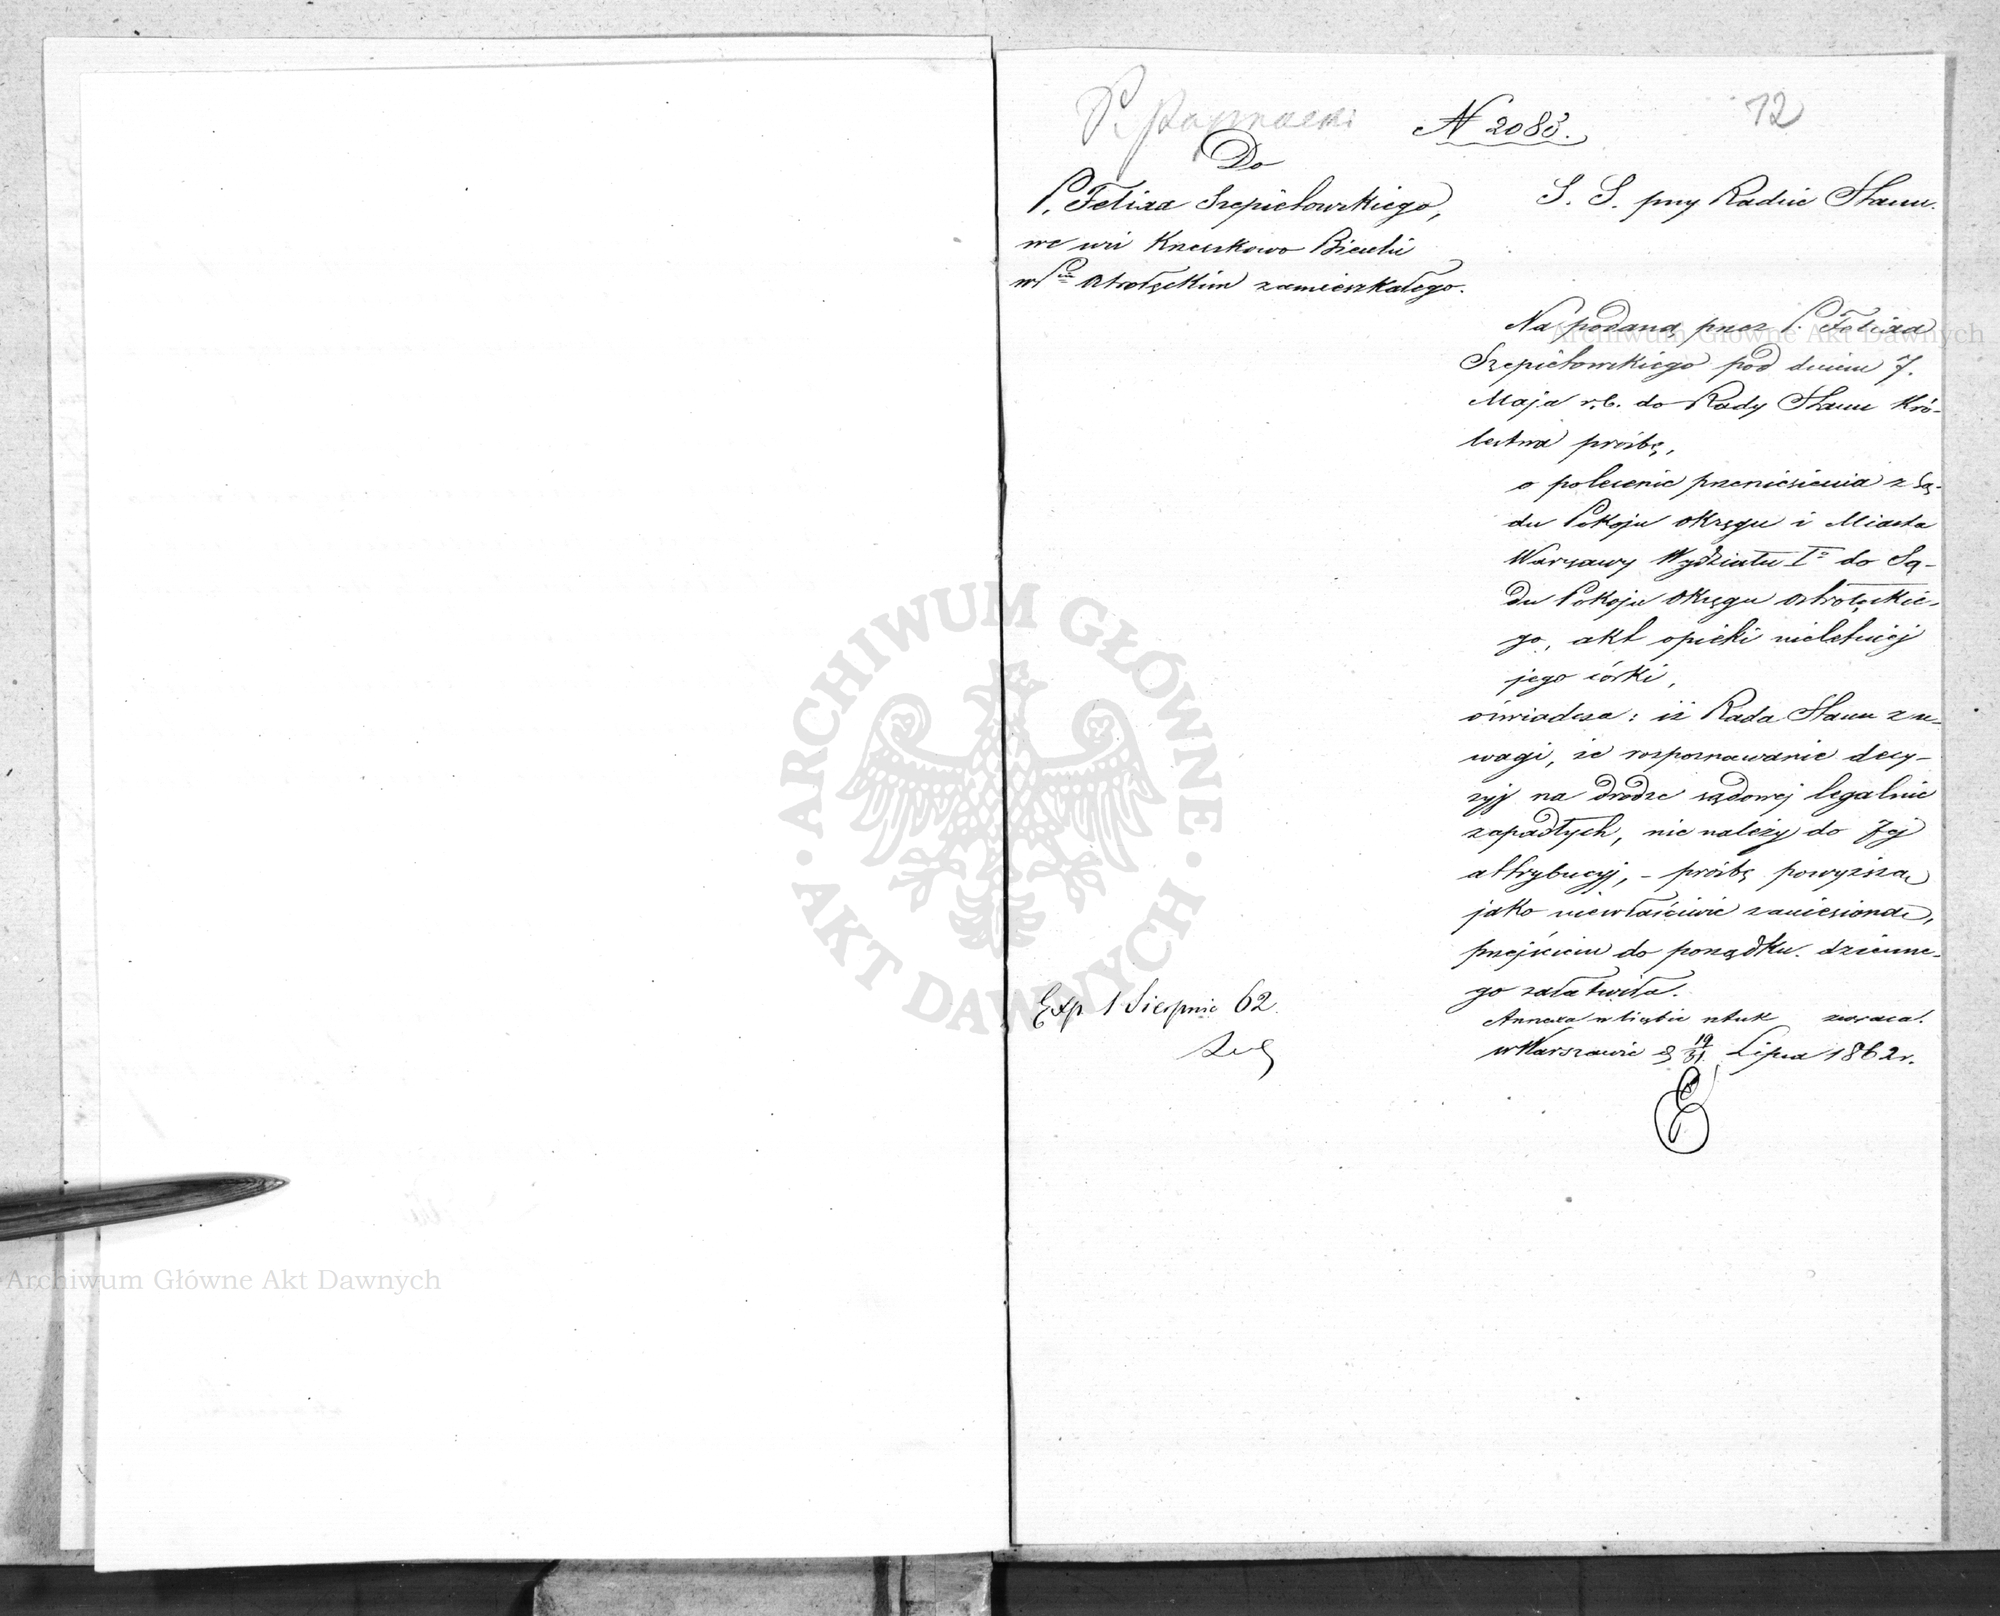 12
N 2083.
Do
P. Felixa Szepietowskiego,
we wsi Kruszkowo Bieuki
w Pcie Ostrołęckim zamieszkałego.
S. S. przy Radzie Stanu.
Na podaną przez P. Felixa
Szepietowskiego pod dniem 7.
Maja r.b. do Rady Stanu Kró-
lestwa prośbę,
o polecenie przeniesienia z Są-
du Pokoju Okręgu i Miasta
Warszawy Wydziału I° do Są-
du Pokoju Okręgu Ostrołęckie-
go, akt opieki nieletniej
jego córki,
oświadcza: iż Rada Stanu z u-
wagi, że rozpoznawanie decy-
zyj na drodze sądowej legalnie
zapadłych, nie należy do Jej
attrybucyj, – prośbę powyższą
jako niewłaściwie zaniesioną,
przejściem do porządku dzienne-
go załatwiła.
Annexa w liczbie sztuk zwraca.
w Warszawie d 19/31 Lipca 1862 r.
Exp 1 Sierpnia 62.
Archiwum Główne Akt Dawnych
ARCHIWUM GŁÓWNE
AKT DAWNYCH
Archiwum Główne Akt Dawnych